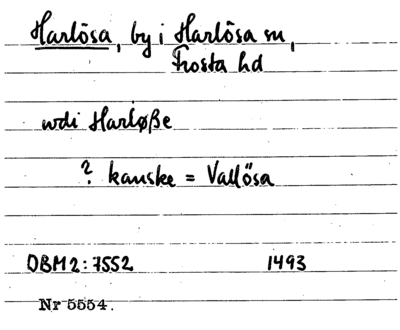 Harlösa, by i Harlösa sn,
Frosta hd
wdi Harløße
? kanske = Vallösa
DBM2:7552 1493
Nr 5554.